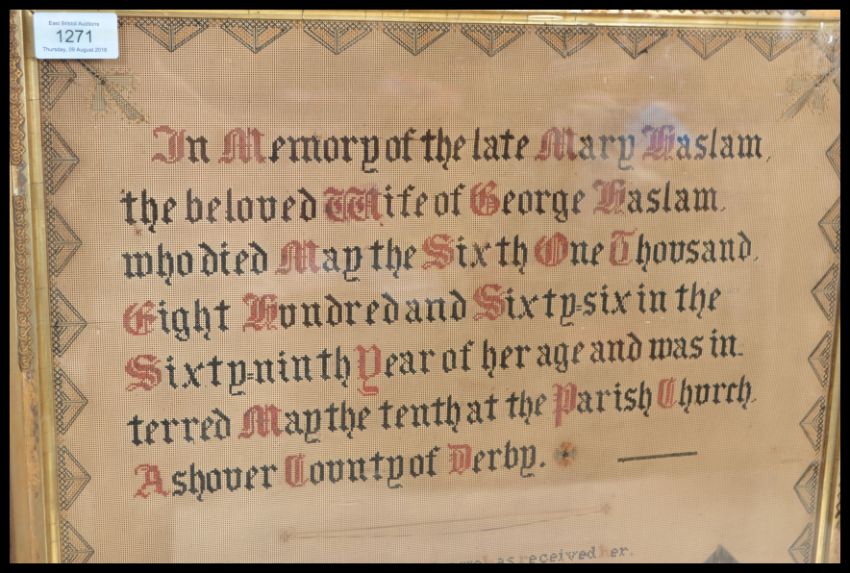 East Bristol Auctions
1271
Thursday, 09 August 2018
In Memory of the late Mary Haslam,
the beloved Wife of George Haslam,
who died May the Sixth One Thousand,
Eight Hundred and Sixty=six in the
Sixty=ninth Year of her age and was in-
terred May the tenth at the Parish Church,
Ashover County of Derby.
has received her.